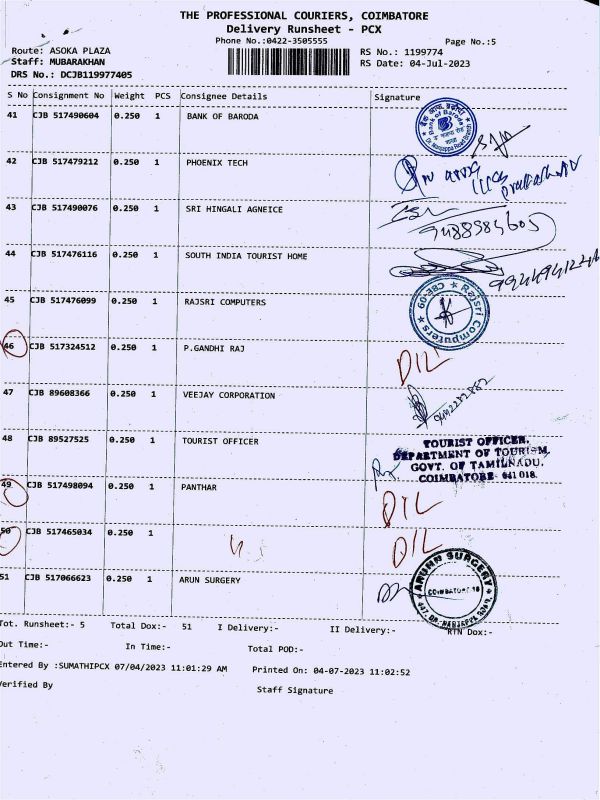 THE PROFESSIONAL COURIERS, COIMBATORE
Delivery Runsheet - PCX
Phone No.:0422-3505555 Page No.:5
Route: ASOKA PLAZA RS No.: 1199774
Staff: MUBARAKHAN RS Date: 04-Jul-2023
DRS No.: DCJB119977405
S No Consignment No Weight PCS Consignee Details Signature
41 CJB 517490604 0.250 1 BANK OF BARODA
Bank of Baroda
42 CJB 517479212 0.250 1 PHOENIX TECH
43 CJB 517490076 0.250 1 SRI HINGALI AGNEICE
9488985605
44 CJB 517476116 0.250 1 SOUTH INDIA TOURIST HOME
45 CJB 517476099 0.250 1 RAJSRI COMPUTERS
Rajsri Computers ★ CBE-09 ★
46 CJB 517324512 0.250 1 P.GANDHI RAJ D/L
47 CJB 89608366 0.250 1 VEEJAY CORPORATION
48 CJB 89527525 0.250 1 TOURIST OFFICER
TOURIST OFFICER,
DEPARTMENT OF TOURISM,
GOVT. OF TAMILNADU,
COIMBATORE- 641 018.
49 CJB 517498094 0.250 1 PANTHAR D/L
50 CJB 517465034 0.250 1 D/L
51 CJB 517066623 0.250 1 ARUN SURGERY
ARUNN SURGERY
COIMBATORE-18
Tot. Runsheet:- 5 Total Dox:- 51 I Delivery:- II Delivery:- RTN Dox:-
Out Time:- In Time:- Total POD:-
Entered By :SUMATHIPCX 07/04/2023 11:01:29 AM Printed On: 04-07-2023 11:02:52
Verified By Staff Signature